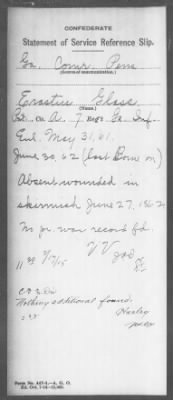 CONFEDERATE
Statement of Service Reference Slip.
Ga. Comr. Pens
(Source of communication.)
Erastus Glass
(Name.)
Co. A. 7 Regt Ga. Inf.
Enl. May 31, 61.
June 30, 62 (last Borne on)
Absent wounded in
skirmish June 27, 1862
No pr. war record fd.
Nothing additional found.
Form No. 447-1—A. G. O.